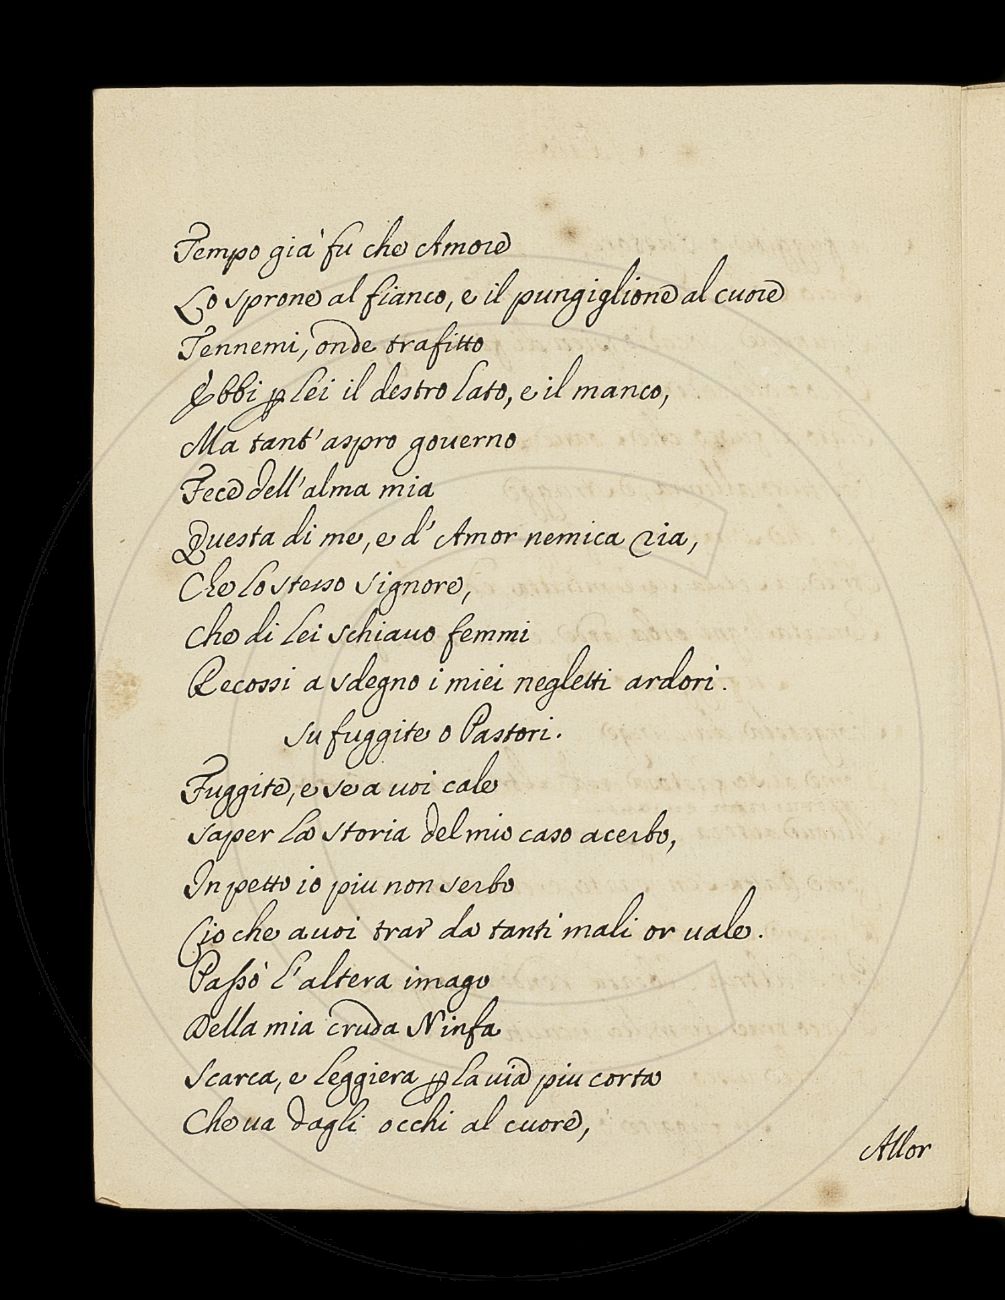 Tempo già fu che Amore
Lo sprone al fianco, e il pungiglione al cuore
Tennemi, onde trafitto
Ebbi ꝑ Lei il destro Lato, e il manco,
Ma tant' aspro governo
Fece dell'alma mia
Questa di me, e d' Amor nemica ria,
Che Lo stesso Signore,
Che di Lei schiauo femmi
Recossi a sdegno i miei negletti ardori.
Su fuggite o Pastori.
Fuggite, e se a uoi cale
Saper La storia del mio caso acerbo,
In petto io piu non serbo
Cio che a uoi trar da tanti mali or uale.
Passò L'altera imago
Della mia cruda Ninfa
Scarca, e Leggiera ꝑ La uia piu corta
Che ua dagli occhi al cuore,
Allor